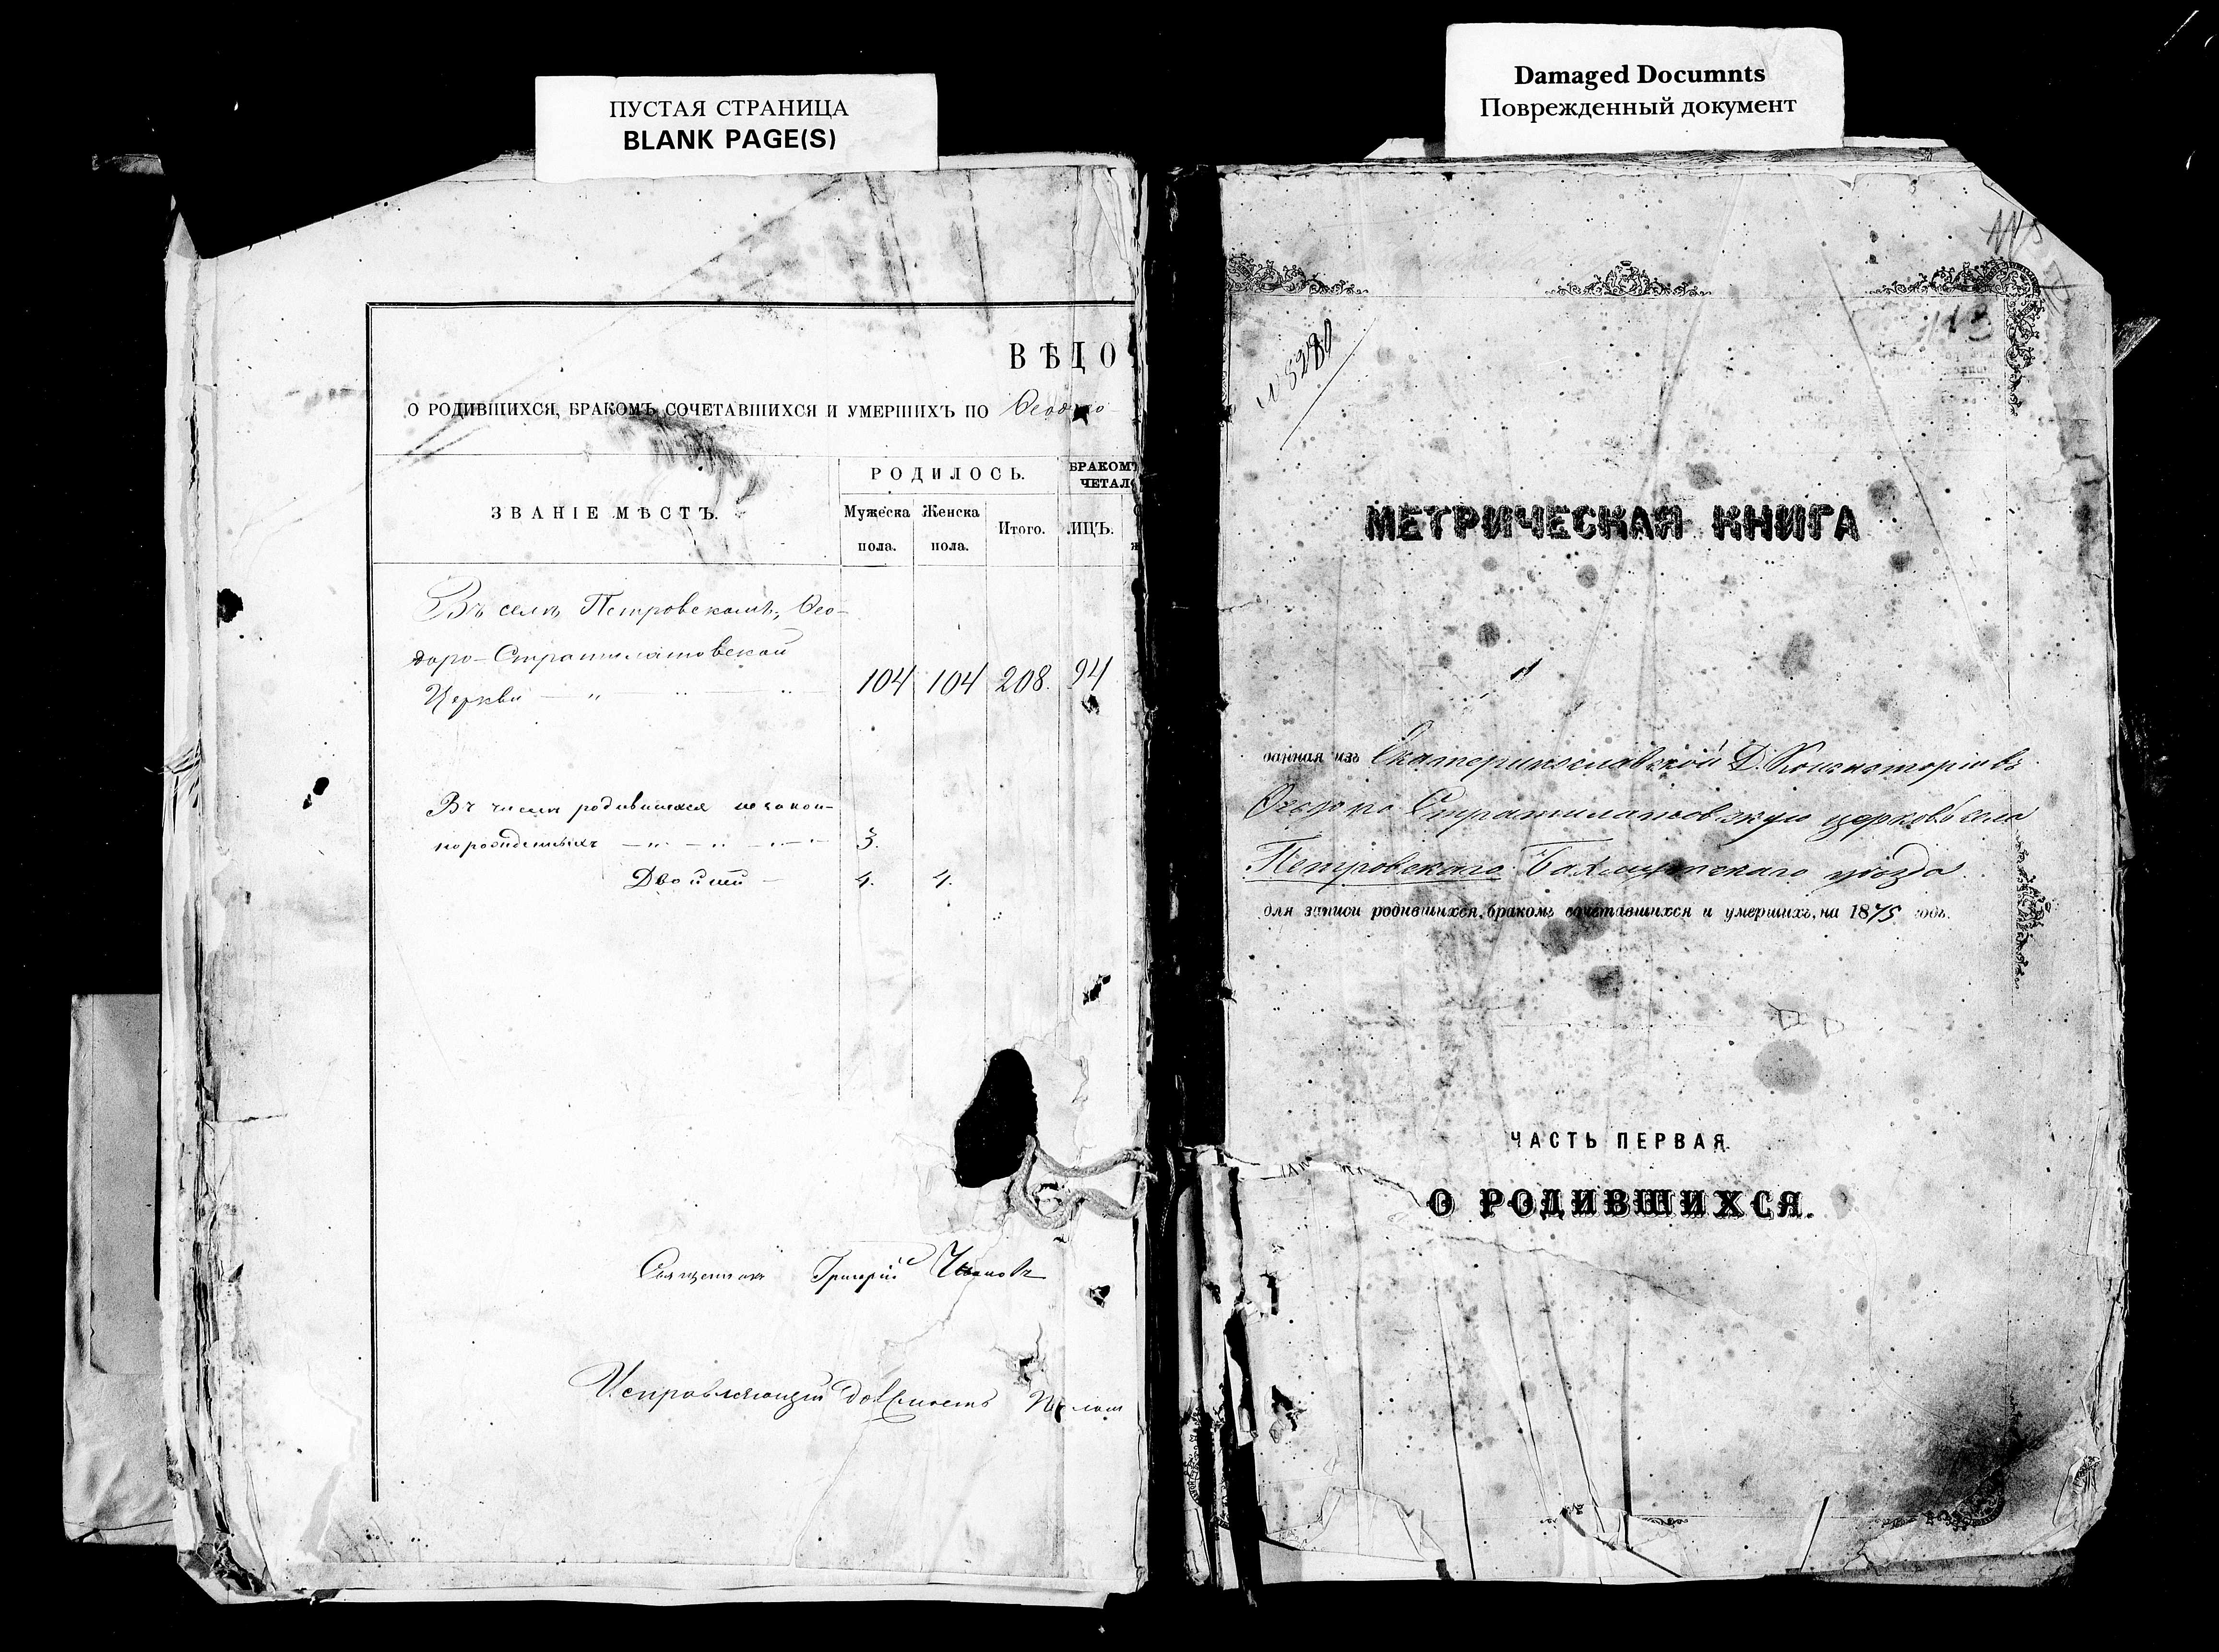 ПУСТАЯ СТРАНИЦА
BLANK PAGE(S)
ВѢДО
О РОДИВШИХСЯ, БРАКОМЪ СОЧЕТАВШИХСЯ И УМЕРШИХЪ ПО Ѳеодоро
ЗВАНІЕ МѢСТЪ.
РОДИЛОСЬ.
БРАКОМЪ
ЧЕТАЛО
Мужеска пола.
Женска пола.
Итого.
ЛИЦЪ.
Въ селѣ Петровскомъ, Ѳео-
доро-Стратилатовской
Церкви — „ 104 104 208. 94
Въ числѣ родившихся незакон-
норожденныхъ — „ — „ — 3.
Двойни — 4. 4.
Священникъ Григорій
Исправляющій должность
Damaged Documnts
Поврежденный документ
113
МЕТРИЧЕСКАЯ КНИГА
данная изъ Екатеринославской Д. Консисторіи въ
Ѳеодоро Стратилатовскую церковь села
Петровскаго Бахмутскаго уѣзда
для записи родившихся, бракомъ сочетавшихся и умершихъ, на 1875 годъ.
ЧАСТЬ ПЕРВАЯ.
О РОДИВШИХСЯ.